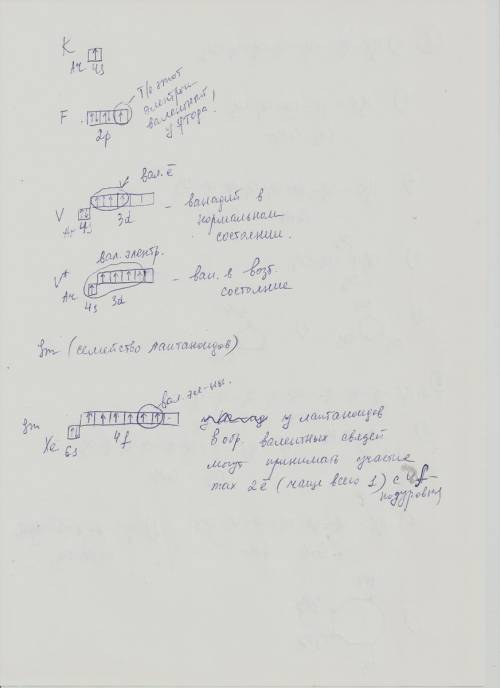 K
Ar 4s
F
2p
Т/е этот
электрон
валентный
у фтора!
вал. ē
V
Ar 4s 3d
– ванадий в
нормальном
состоянии.
вал. электр.
V*
Ar 4s 3d
– ван. в возб.
состояние
Sm (семейство лантаноидов)
вал. эл-ны.
Sm
Xe 6s 4f
у лантаноидов
в обр. валентных связей
могут принимать участие
max 2ē (чаще всего 1) с 4f-
подуровня